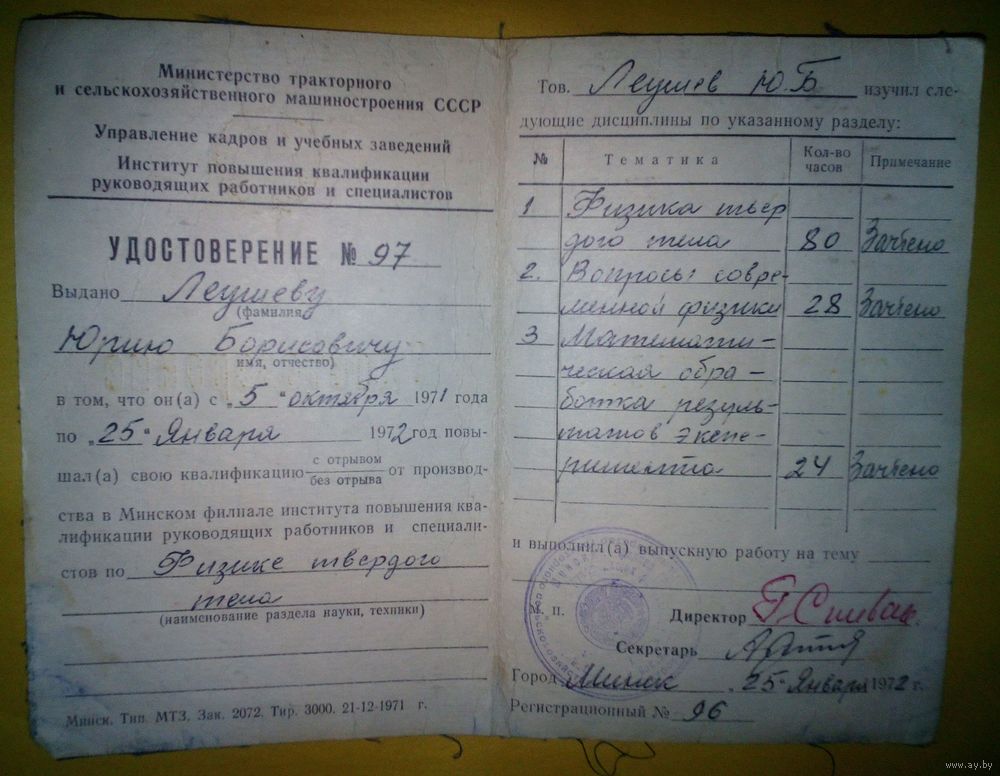 Министерство тракторного
и сельскохозяйственного машиностроения СССР
Управление кадров и учебных заведений
Институт повышения квалификации
руководящих работников и специалистов
УДОСТОВЕРЕНИЕ № 97
Выдано Леушеву
(фамилия)
Юрию Борисовичу
имя, отчество)
в том, что он(а) с „5" октября 1971 года
по „25" Января 1972 год повы-
шал(а) свою квалификацию с отрывом
без отрыва от производ-
ства в Минском филиале института повышения ква-
лификации руководящих работников и специали-
стов по Физике твердого
тела
(наименование раздела науки, техники)
Минск. Тип. МТЗ. Зак. 2072. Тир. 3000. 21-12-1971 г.
Тов. Леушев Ю.Б изучил сле-
дующие дисциплины по указанному разделу:
№ Тематика Кол-во часов Примечание
1 Физика твер
дого тела 80 Зачтено
2. Вопросы совре-
менной физики 28 Зачтено
3 Математи-
ческая обра-
ботка резуль-
татов экспе-
римента 24 Зачтено
и выполнил(а) выпускную работу на тему
М. П.
Директор
Секретарь
Город Минск „25" Января 1972 г.
Регистрационный № 96
www.ay.by